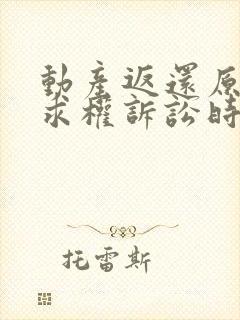 動產返還原
求權訴訟時
托雷斯